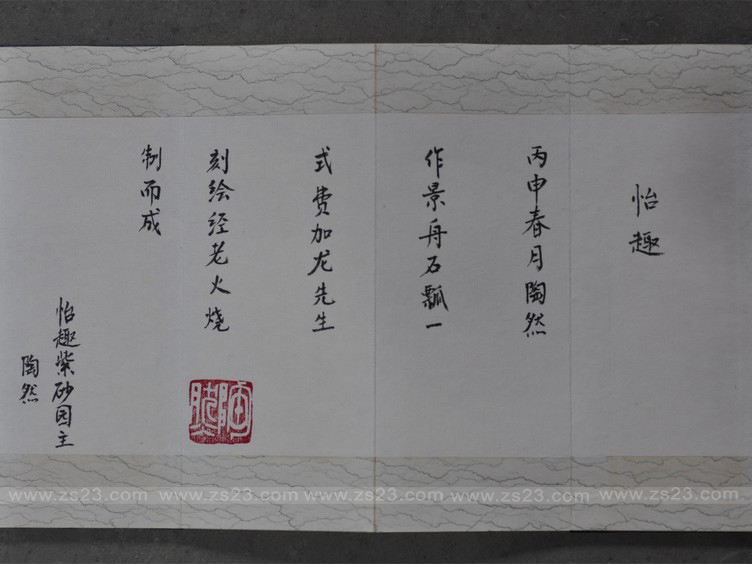 怡趣
丙申春月陶然
作景舟石瓢一
式费加龙先生
刻绘经老火烧
制而成
怡趣紫砂园主
陶然
陶然
www.zs23.com www.zs23.com www.zs23.com www.zs23.com www.zs23.com